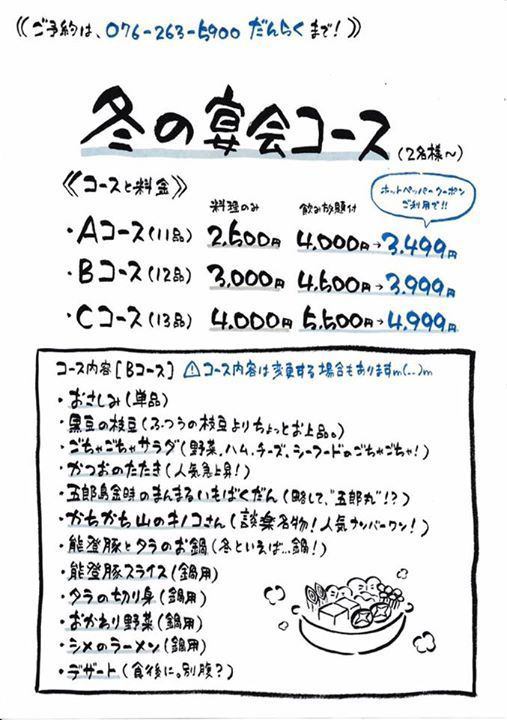 《ご予約は、076-263-5900 だんらくまで!》
冬の宴会コース(2名様〜)
《コースと料金》
料理のみ 飲み放題付
ホットペッパークーポン
ご利用で!!
・Aコース(11品) 2,500円 4,000円→3,499円
・Bコース(12品) 3,000円 4,500円→3,999円
・Cコース(13品) 4,000円 5,500円→4,999円
コース内容[Bコース] ⚠コース内容は変更する場合もありますm(...)m
・おさしみ(単品)
・黒豆の枝豆(ふつうの枝豆よりちょっとお上品。)
・ごちゃごちゃサラダ(野菜、ハム、チーズ、シーフードのごちゃごちゃ!)
・かつおのたたき(人気急上昇!)
・五郎島金時のまんまるいもばくだん(略して、"五郎丸"!?)
・かちかち山のキノコさん(談楽名物!人気ナンバーワン!)
・能登豚とタラのお鍋(冬といえば...鍋!)
・能登豚スライス(鍋用)
・タラの切り身(鍋用)
・おかわり野菜(鍋用)
・シメのラーメン(鍋用)
・デザート(食後に。別腹?)